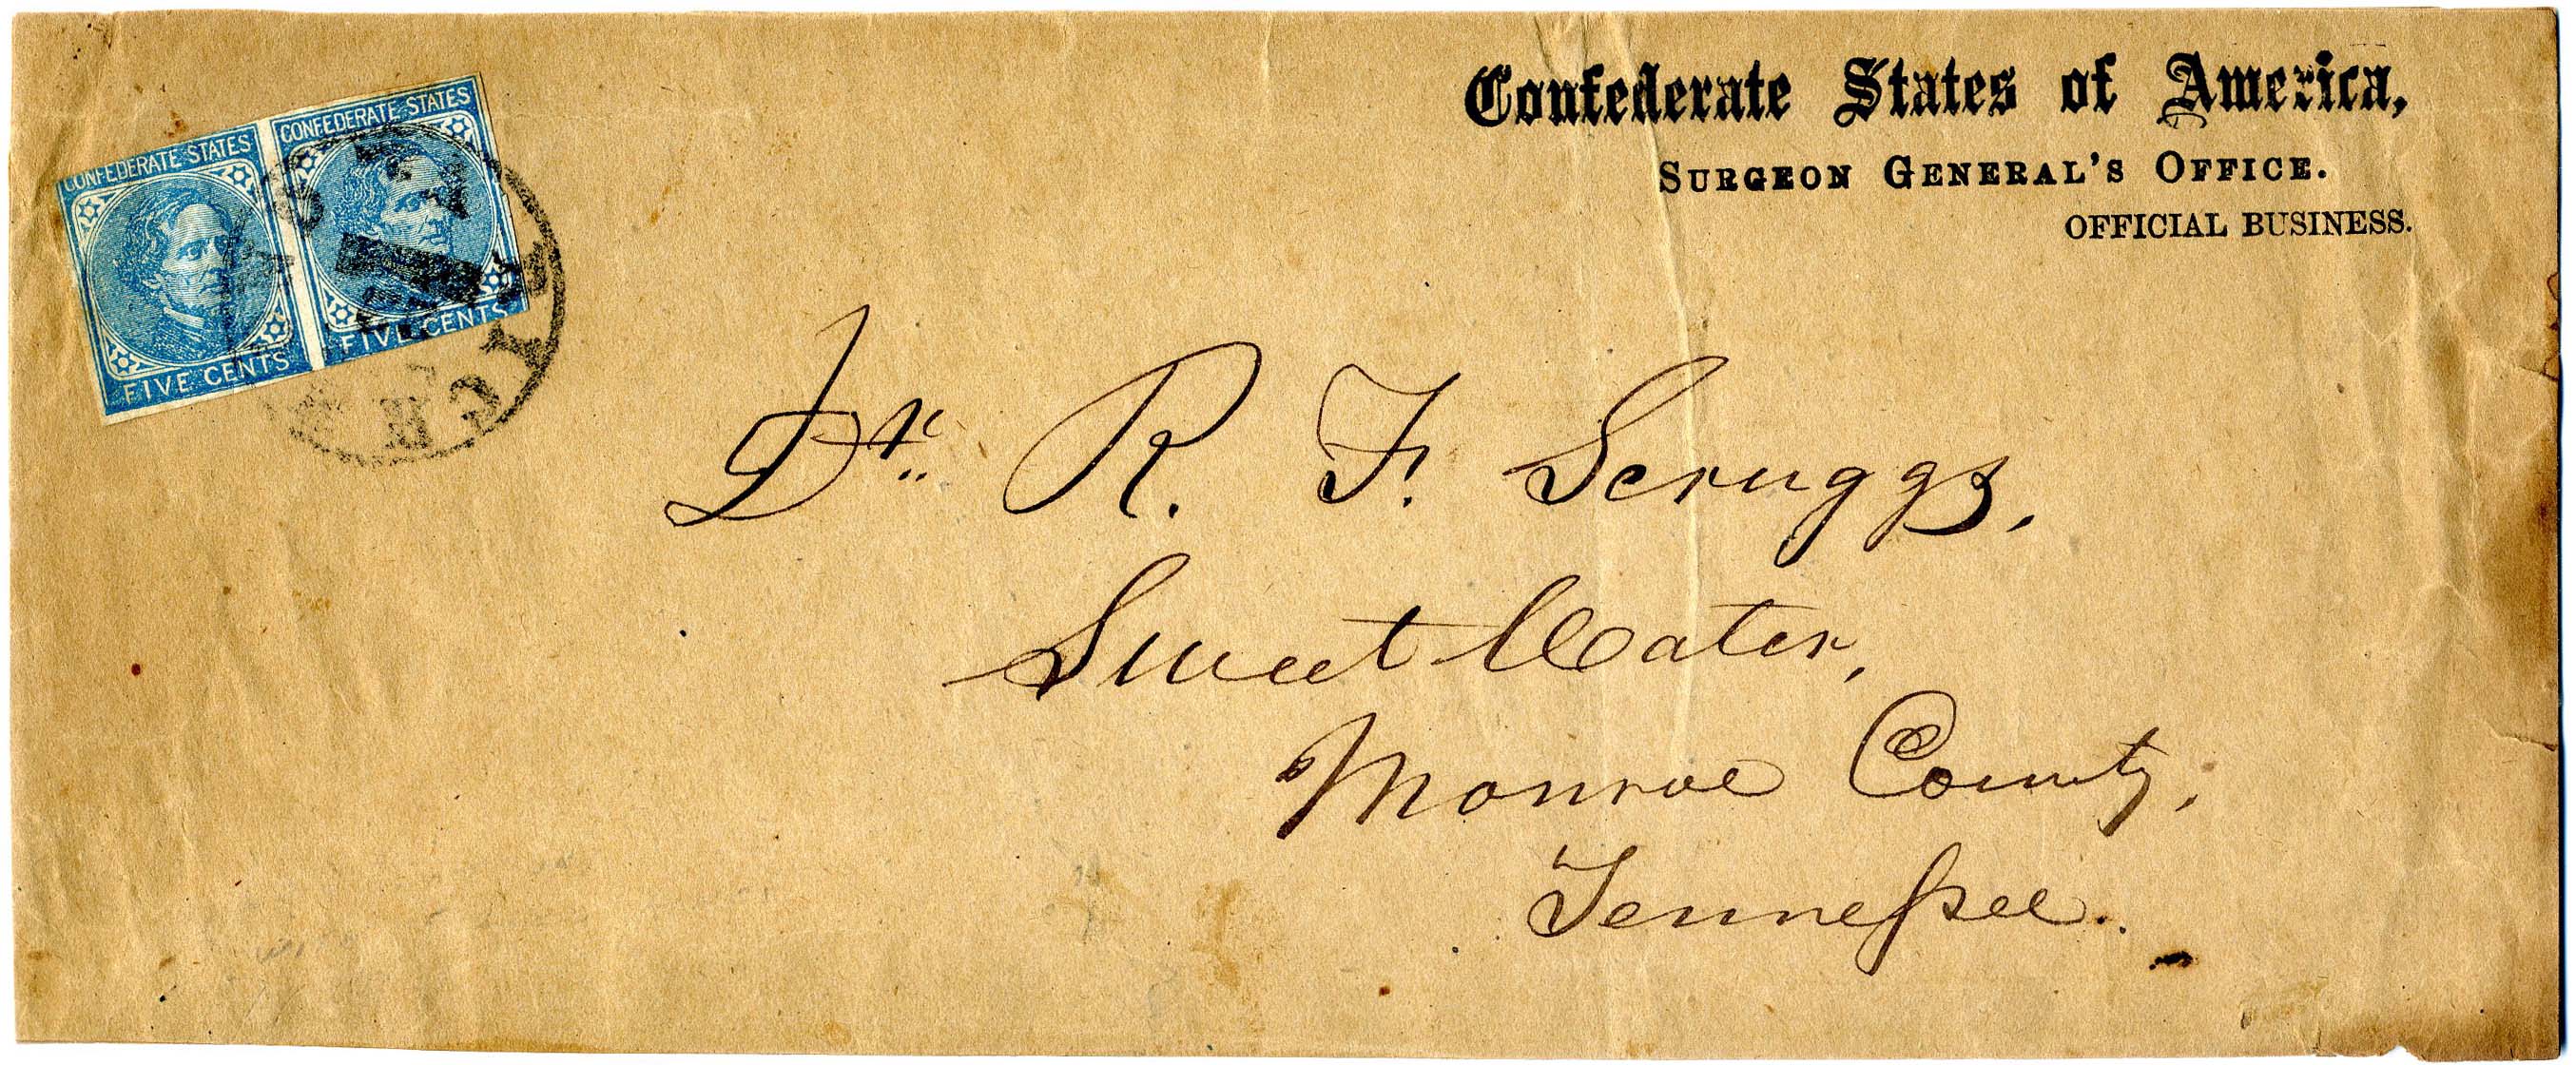 Confederate States of America,
SURGEON GENERAL'S OFFICE.
OFFICIAL BUSINESS.
CONFEDERATE STATES
FIVE CENTS
CONFEDERATE STATES
FIVE CENTS
Dr. R. F. Scruggs,
Sweet Water,
Monroe County,
Tennessee.